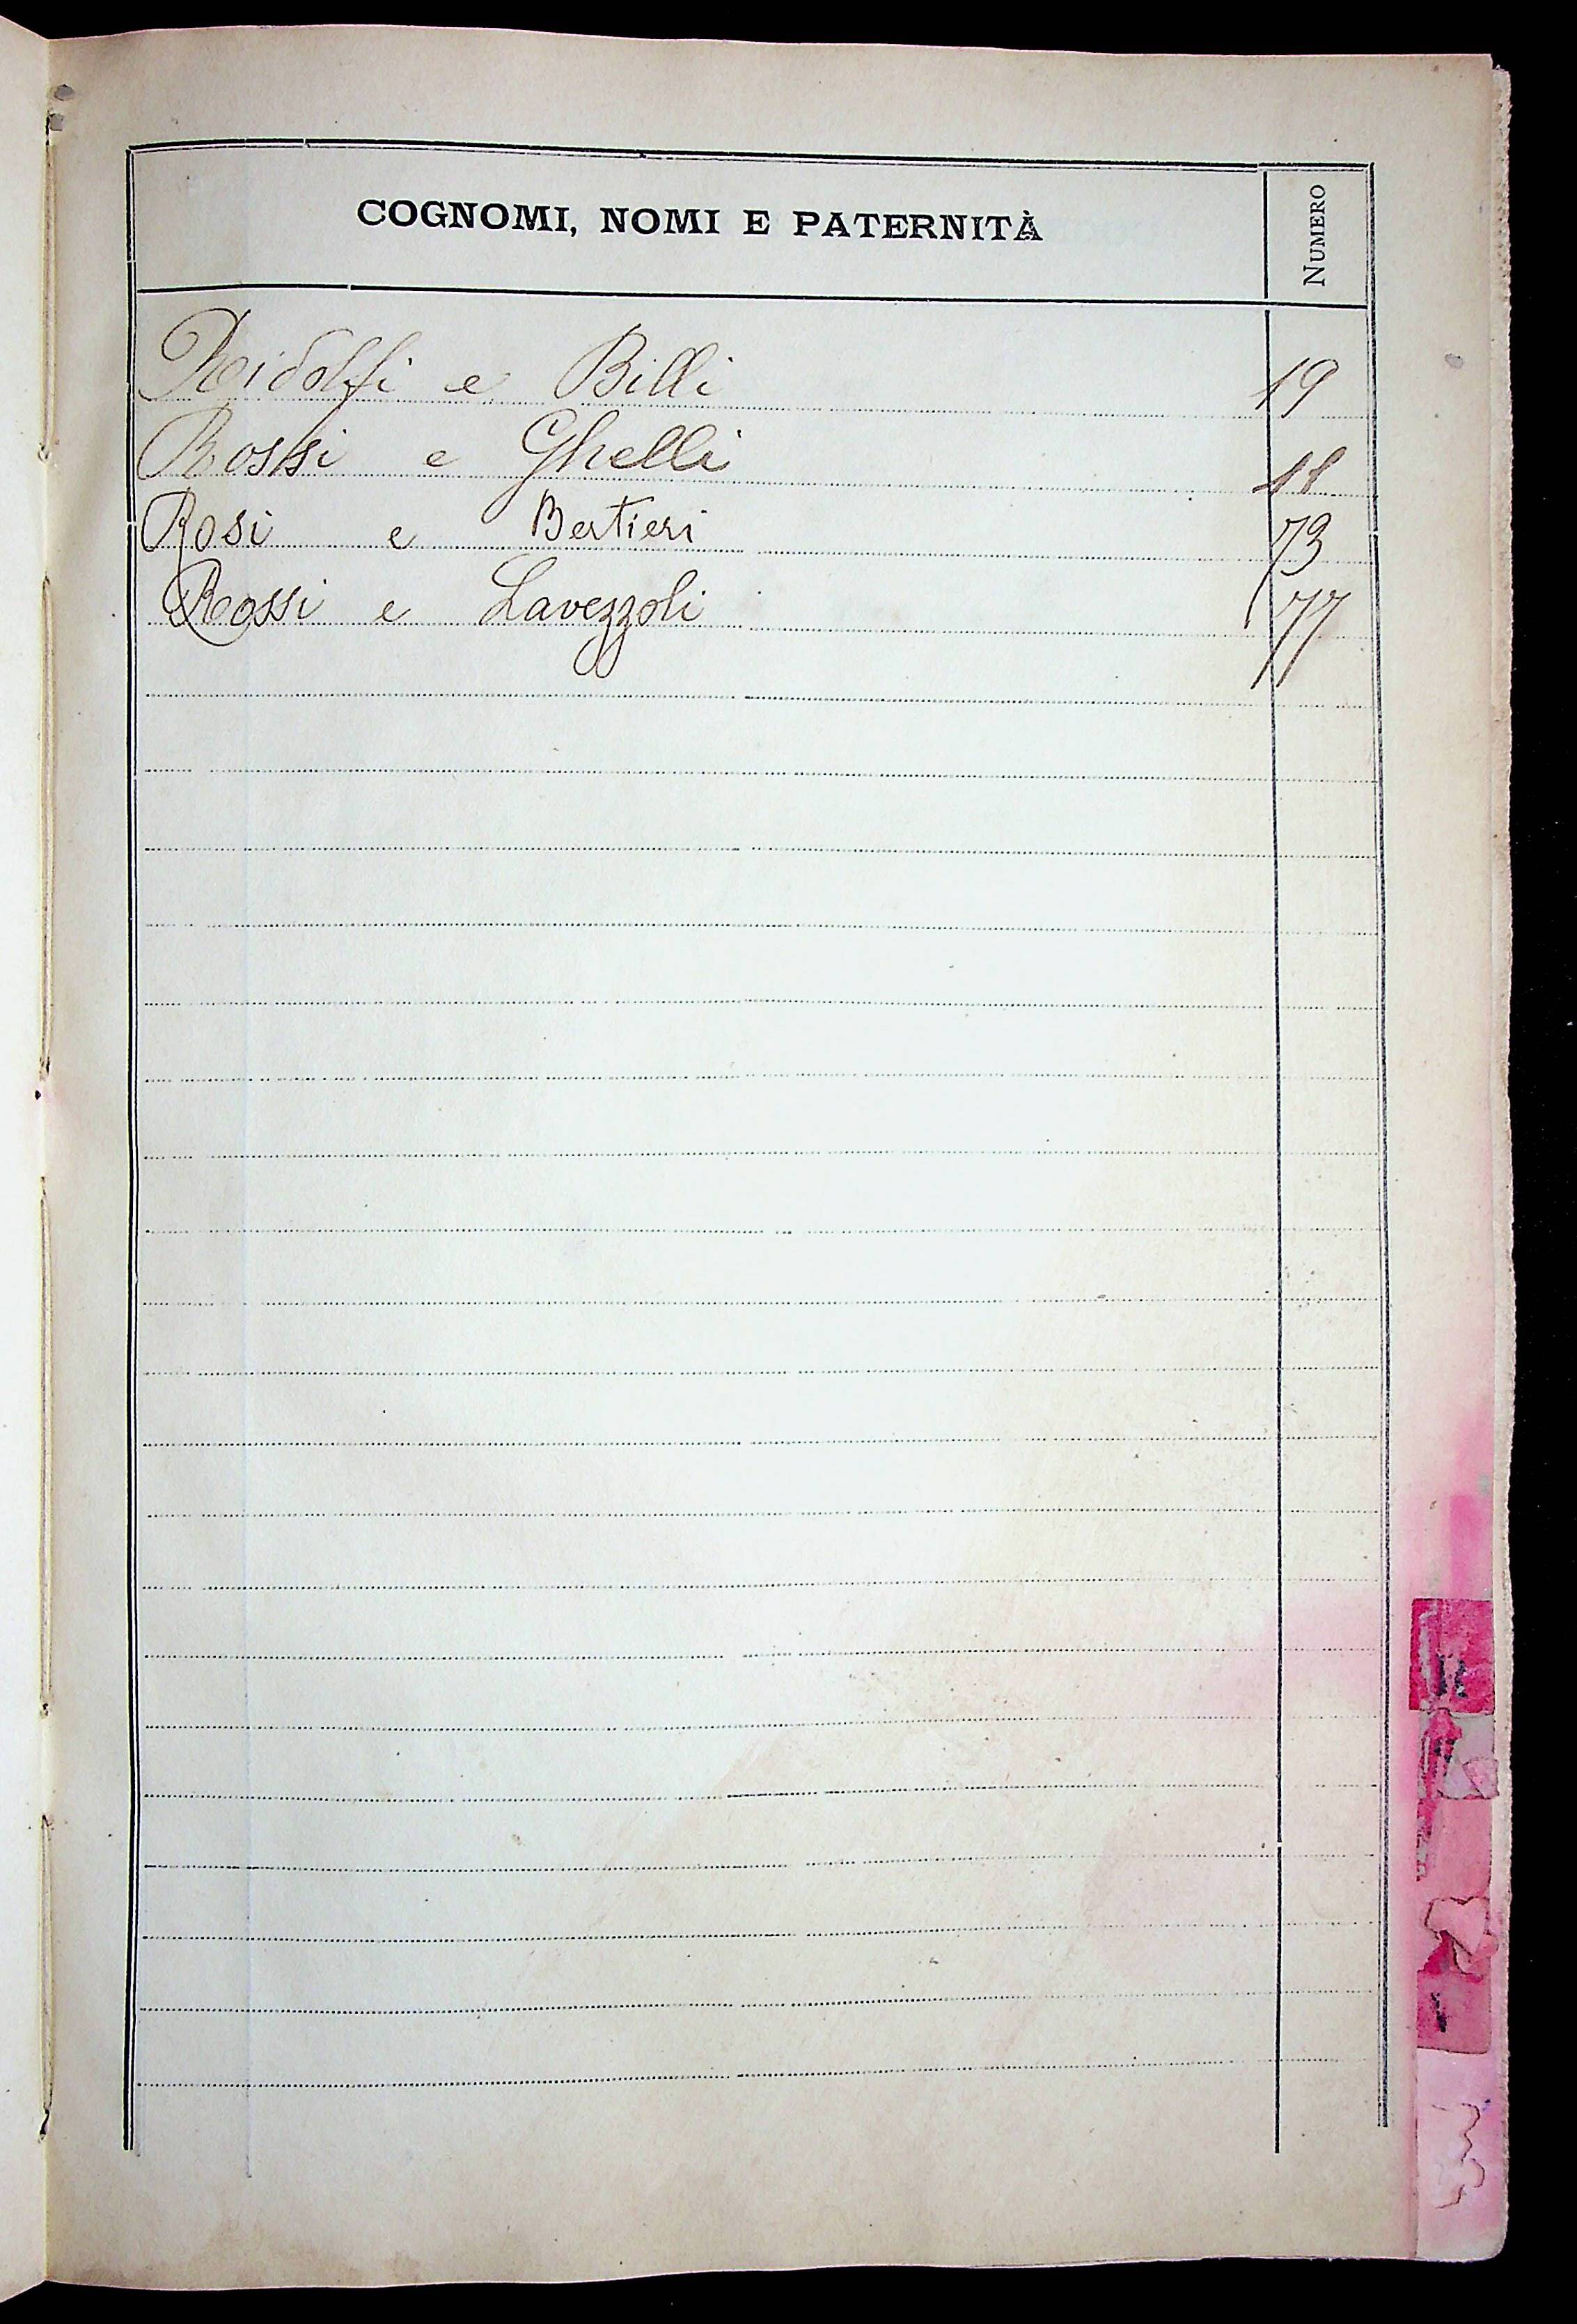 COGNOMI, NOMI E PATERNITÀ
NUMERO
Ridolfi e Billi 19
Rossi e Ghelli
Rosi e Bertieri 73
Rossi e Lavezzoli 77
R